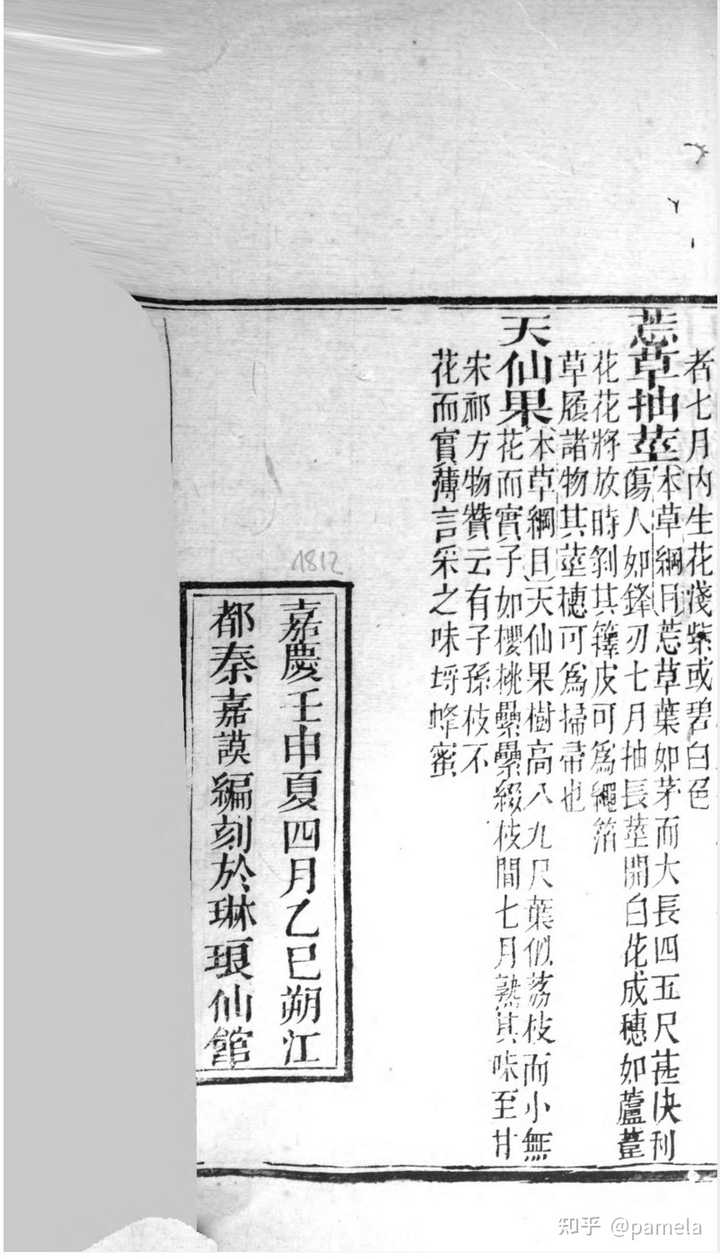 者七月內生花淺紫或碧白色
莣草抽莖
本草綱目莣草葉如茅而大長四五尺甚快利
傷人如鋒刃七月抽長莖開白花成穗如蘆葦
花花將放時剝其籜皮可為繩箔
草履諸物其莖穗可為掃帚也
天仙果
本草綱目天仙果樹高八九尺葉似荔枝而小無
花而實子如櫻桃纍纍綴枝間七月熟其味至甘
宋祁方物贊云有子孫枝不
花而實薄言采之味埒蜂蜜
1812
嘉慶壬申夏四月乙巳朔江
都秦嘉謨編刻於琳琅仙館
知乎 @pamela